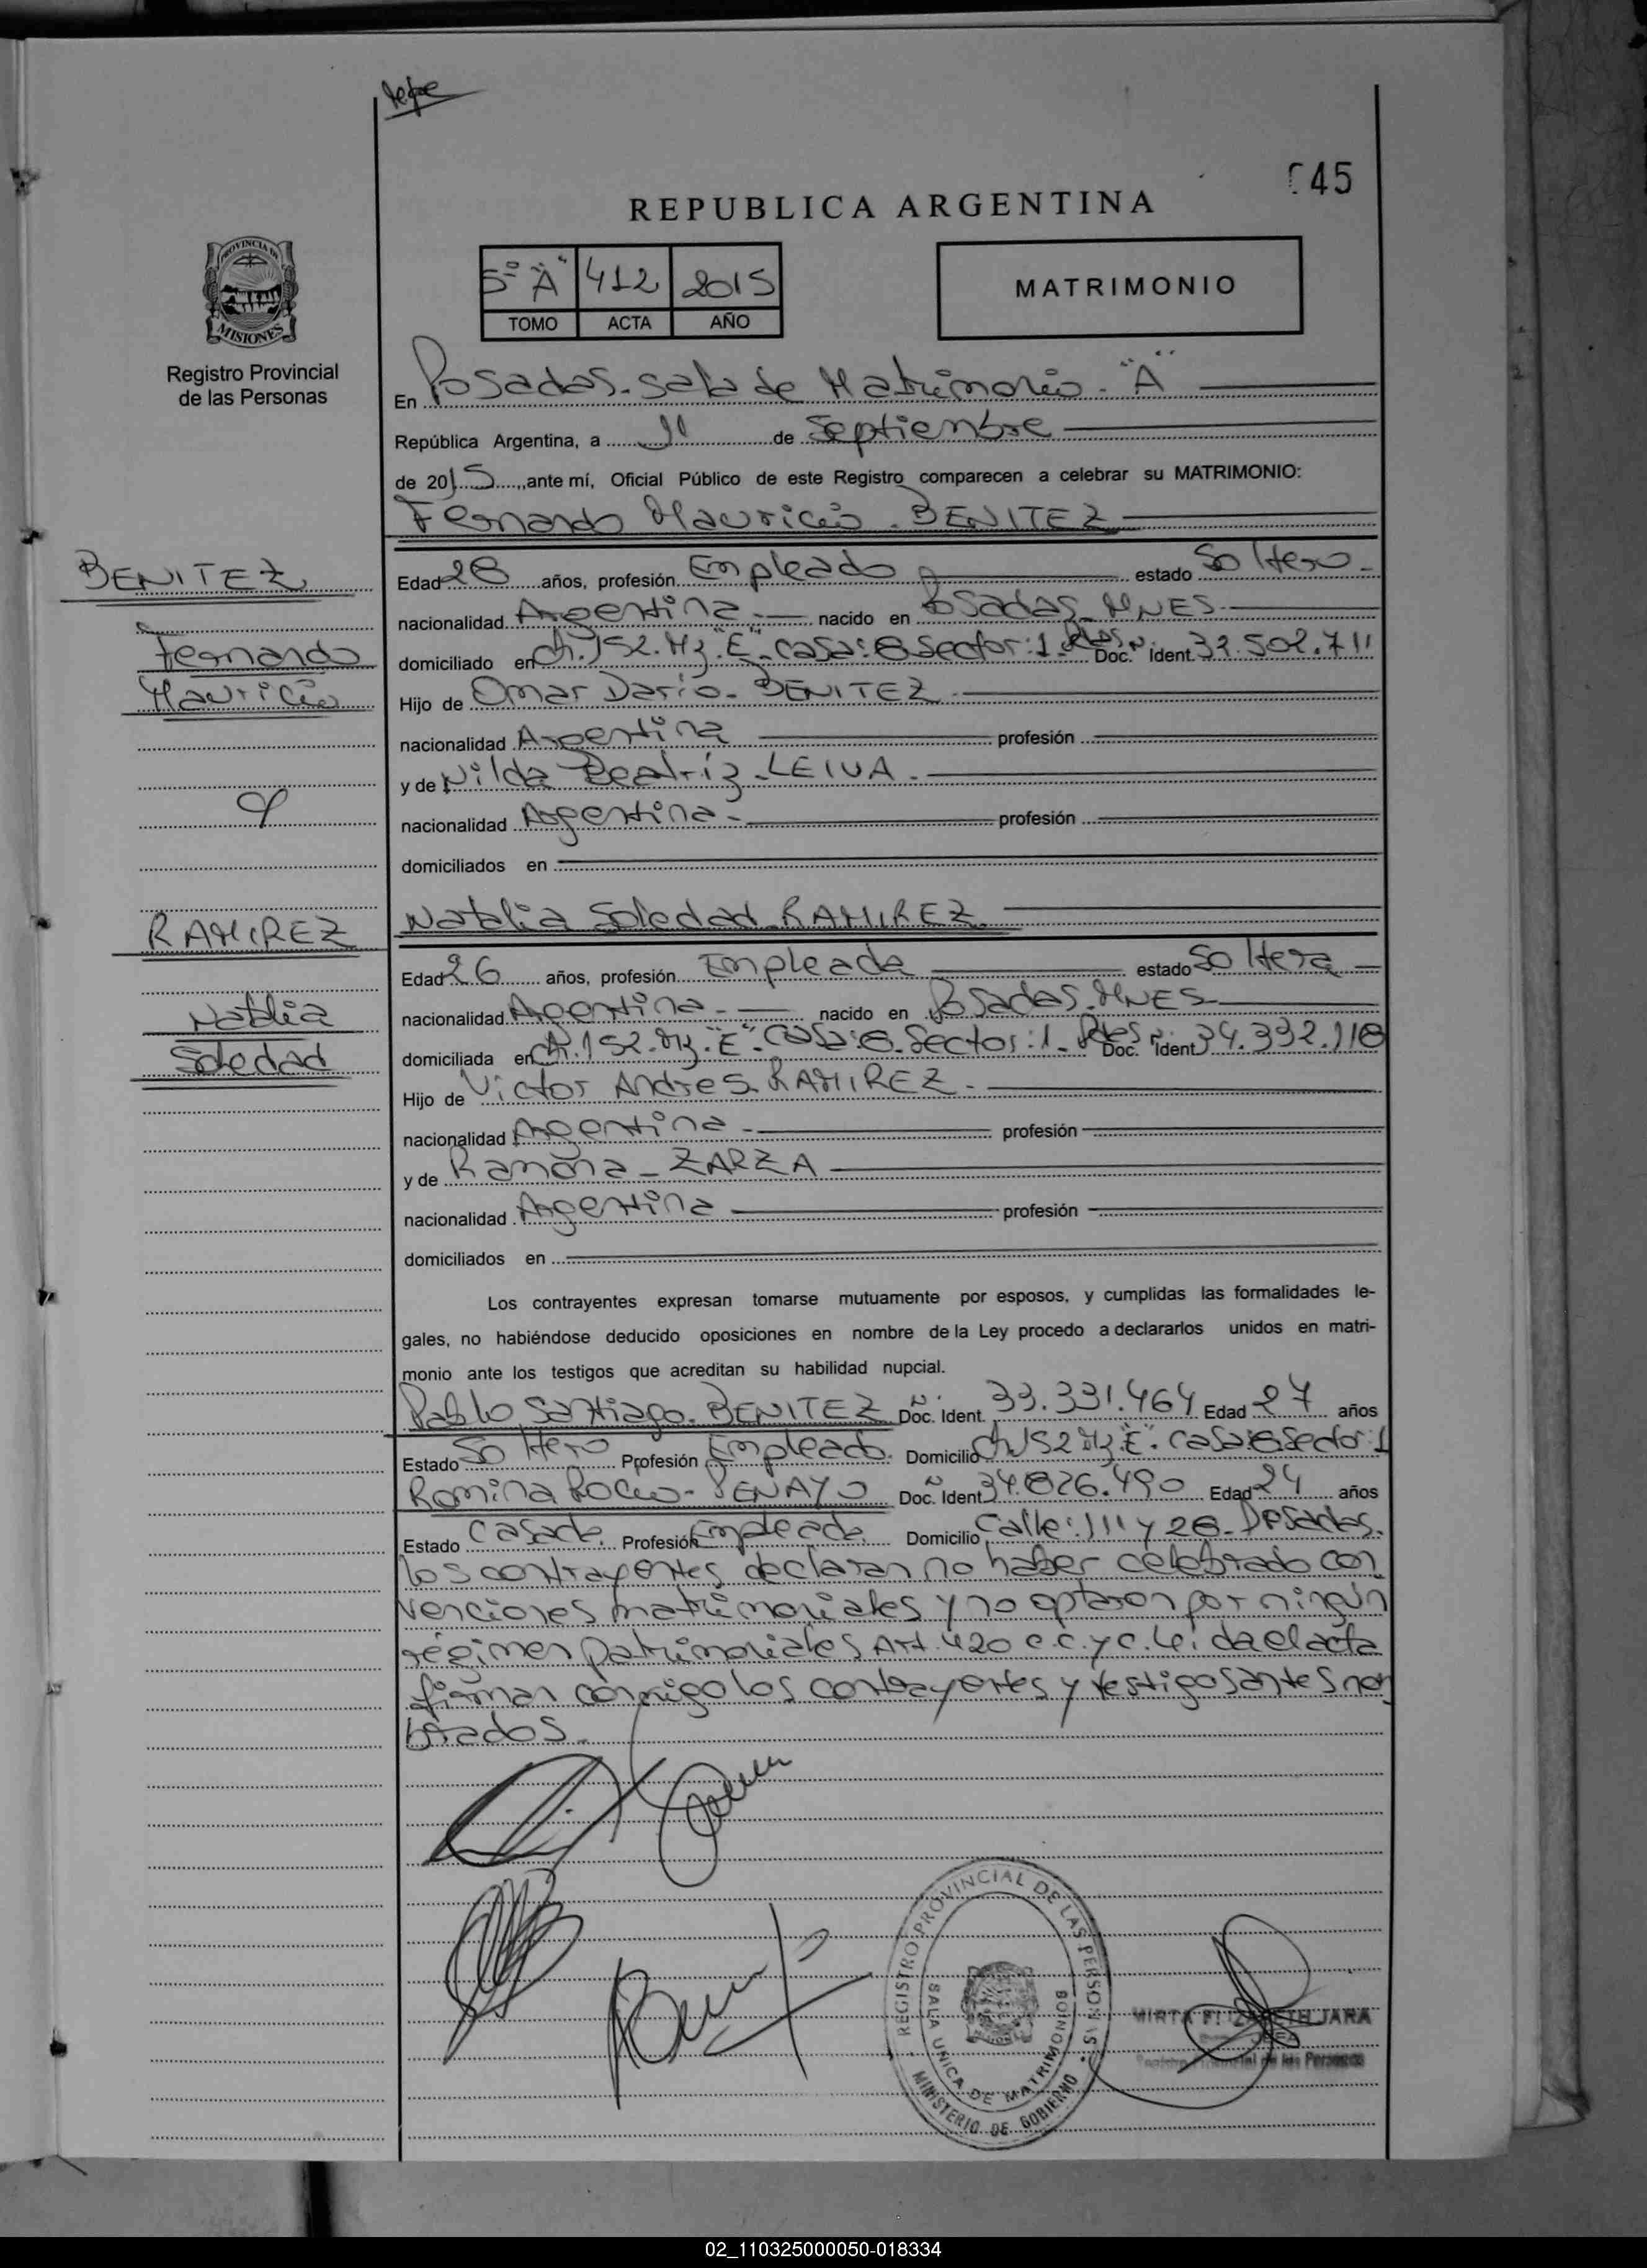 045
REPUBLICA ARGENTINA
5º "A" 412 2015
TOMO ACTA AÑO
MATRIMONIO
PROVINCIA DE
MISIONES
Registro Provincial
de las Personas
En Posadas. sala de Matrimonio. "A"
República Argentina, a 11 de Septiembre
de 2015, ante mí, Oficial Público de este Registro comparecen a celebrar su MATRIMONIO:
Fernando Mauricio. BENITEZ
BENITEZ
Fernando
Mauricio
Edad 28 años, profesión Empleado estado Soltero-
nacionalidad Argentina.- nacido en Posadas. MNES.
domiciliado en Ch. 152. Mz. "E". casa: 8 sector: 1. Pdas Doc. Nº Ident. 32.502.711
Hijo de Omar Darío. BENITEZ
nacionalidad Argentina profesión
y de Nilda Beatríz. LEIVA.
nacionalidad Argentina- profesión
domiciliados en
y
RAMIREZ
Natalia
Soledad
Natalia Soledad. RAMIREZ.
Edad 26 años, profesión Empleada estado Soltera
nacionalidad Argentina.- nacido en Posadas. MNES
domiciliada en Ch. 152. Mz. "E". casa: 8. Sector: 1. Pdas Doc. Nº Ident 34.392.118
Hijo de Victor Andres. RAMIREZ.
nacionalidad Argentina- profesión
y de Ramona- ZARZA
nacionalidad Argentina profesión
domiciliados en
Los contrayentes expresan tomarse mutuamente por esposos, y cumplidas las formalidades le-
gales, no habiéndose deducido oposiciones en nombre de la Ley procedo a declararlos unidos en matri-
monio ante los testigos que acreditan su habilidad nupcial.
Pablo Santiago. BENITEZ Nº Doc. Ident. 33.331.464 Edad 27 años
Estado Soltero Profesión Empleado. Domicilio Ch 152 Mz "E". casa: 8 sector: 1
Romina Rocio- PENAYO Nº Doc. Ident 34.826.490 Edad 24 años
Estado Casada. Profesión Empleada. Domicilio Calle: 111 y 28. Posadas.
los contrayentes declaran no haber celebrado con
venciones matrimoniales y no optaron por ningún
régimen patrimoniales Art. 420 C.C. y C. Leída el acta
firman conmigo los contrayentes y testigos antes nom
brados.
REGISTRO PROVINCIAL DE LAS PERSONAS
SALA UNICA DE MATRIMONIOS
MINISTERIO DE GOBIERNO
MIRTA ELIZABETH JARA
JEFA
Registro Provincial de las Personas
02_110325000050-018334